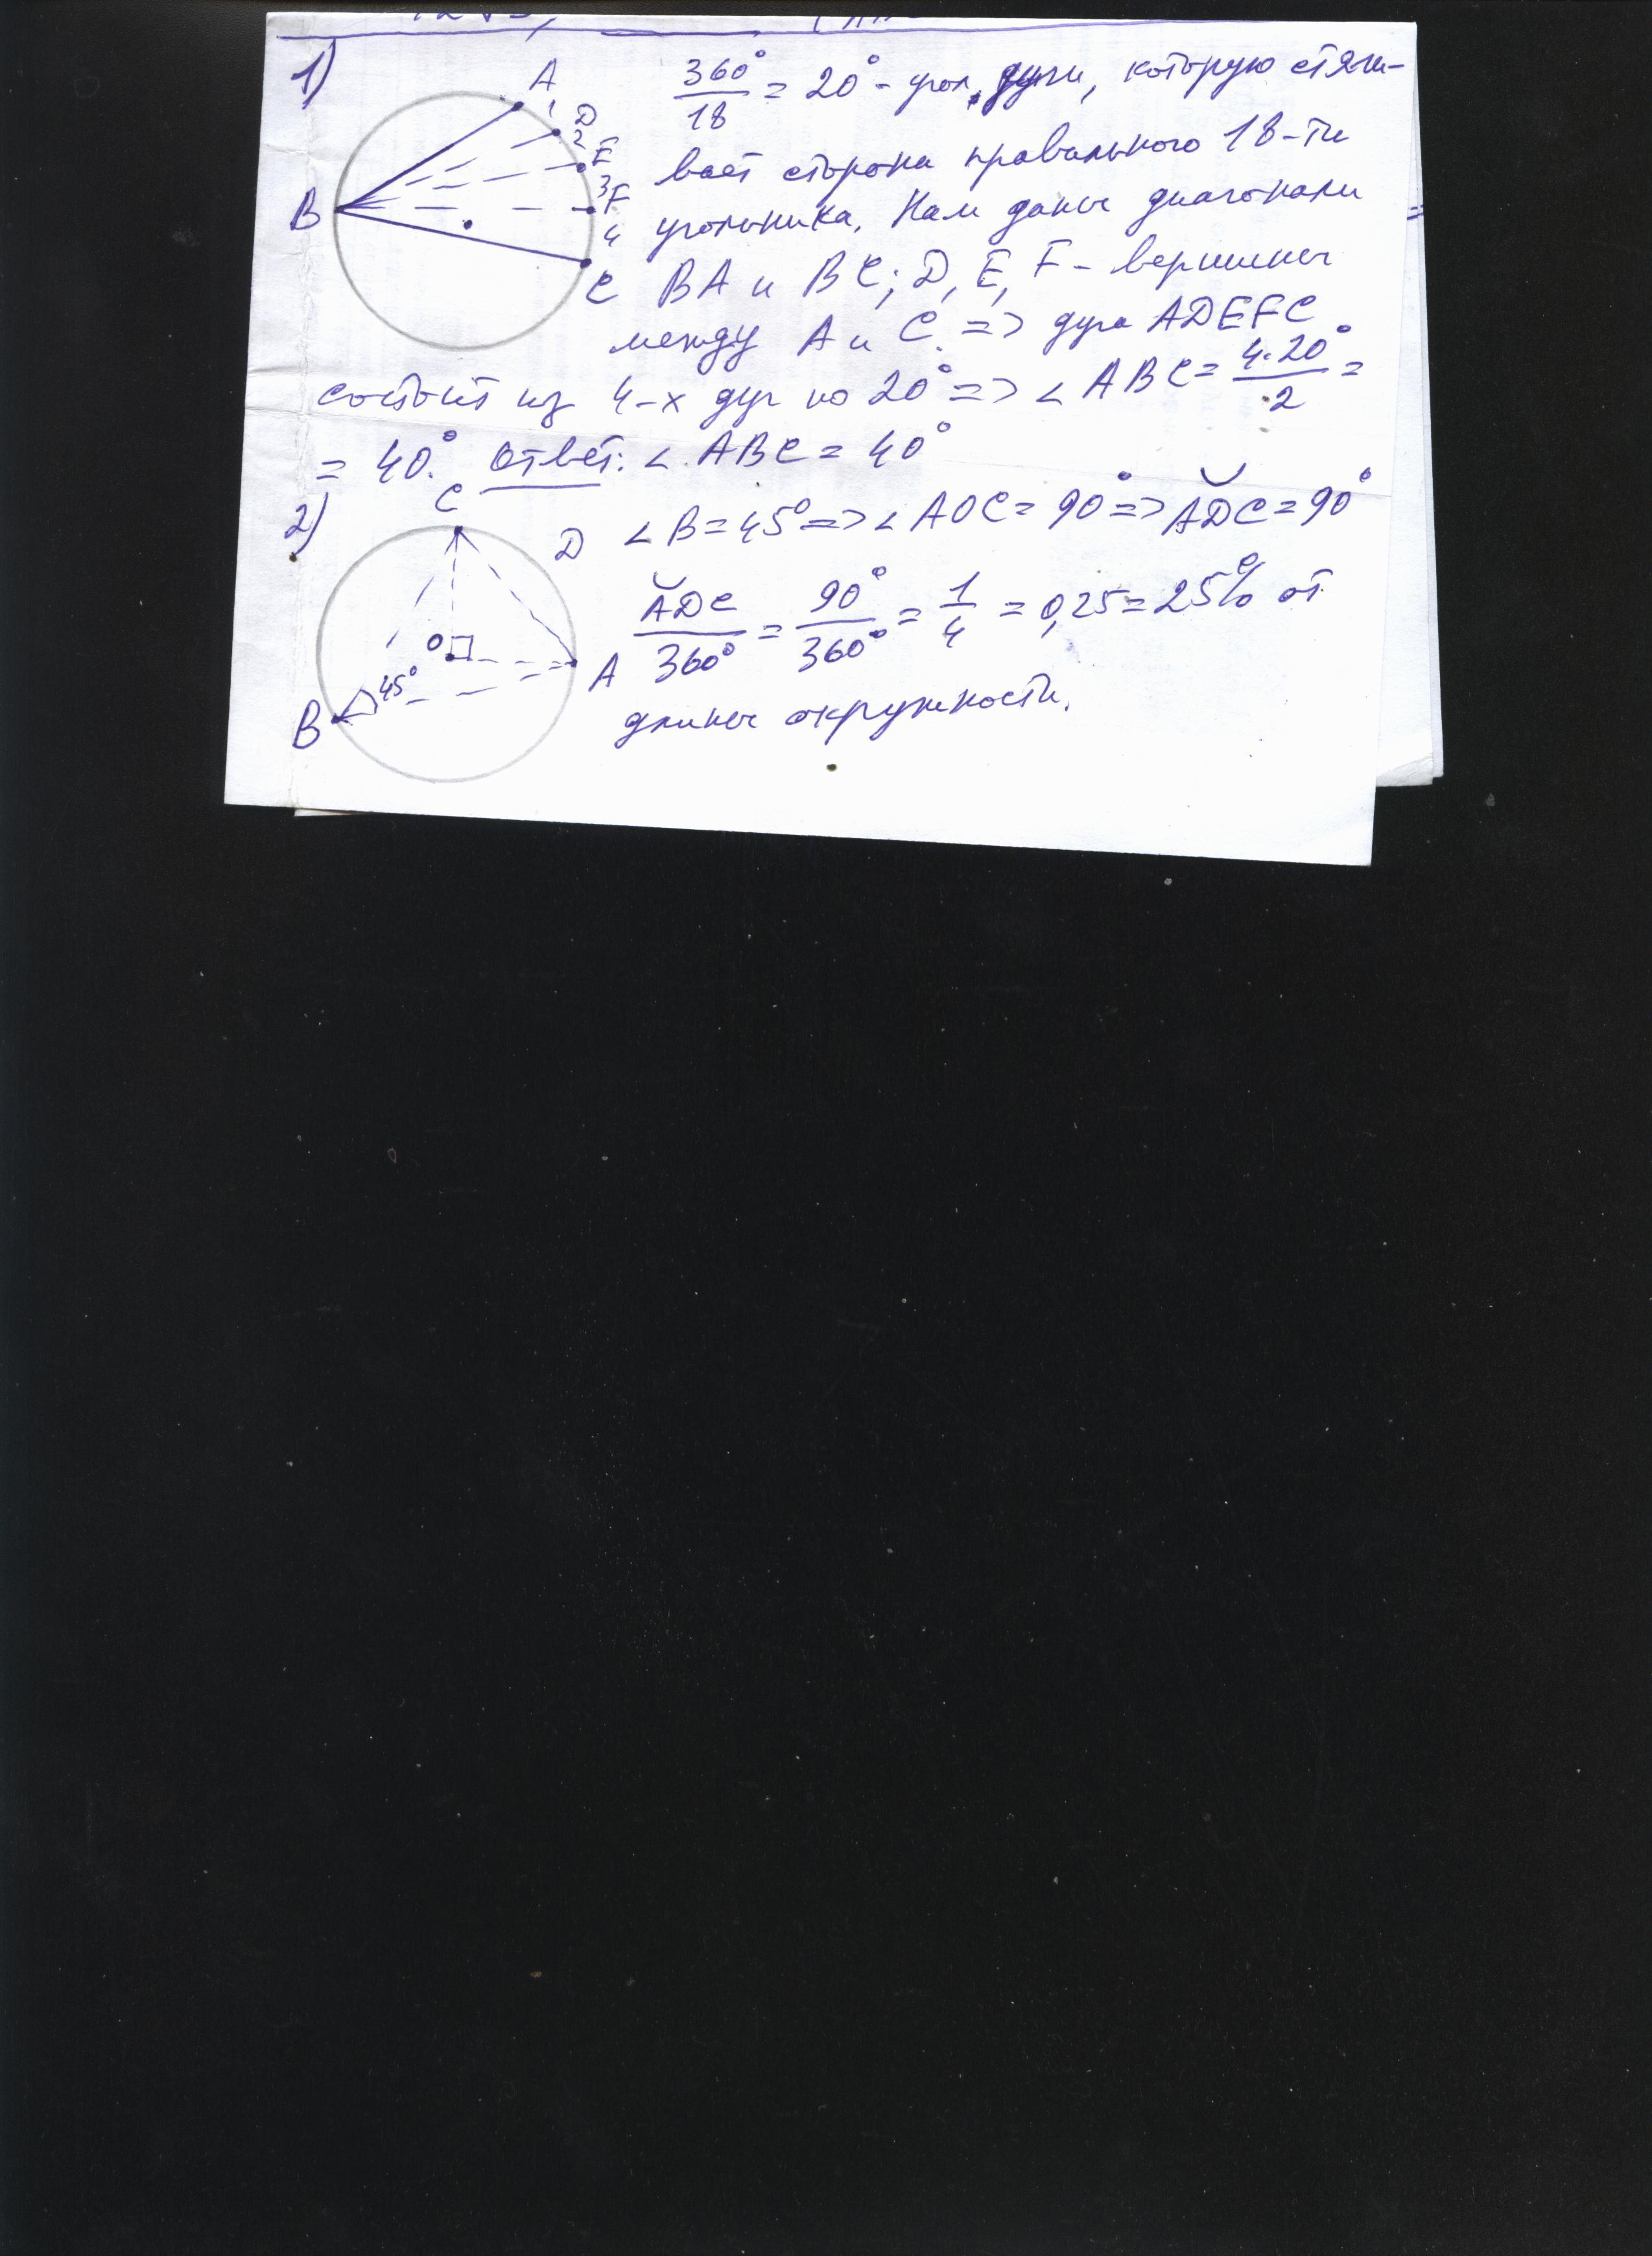 1)
A
1
D
2
E
3
F
4
B
C
360° / 18 = 20° - угол дуги, которую стяги-
вает сторона правильного 18-ти
угольника. Нам даны диагонали
BA и BC; D, E, F - вершины
между A и C. => дуга ADEFC
состоит из 4-х дуг по 20° => ∠ ABC = 4·20° / 2 =
= 40°. Ответ: ∠ ABC = 40°
2)
C
D
O
45°
A
B
∠ B = 45° => ∠ AOC = 90° => ADC = 90°
ADC / 360° = 90° / 360° = 1/4 = 0,25 = 25% от
длины окружности.